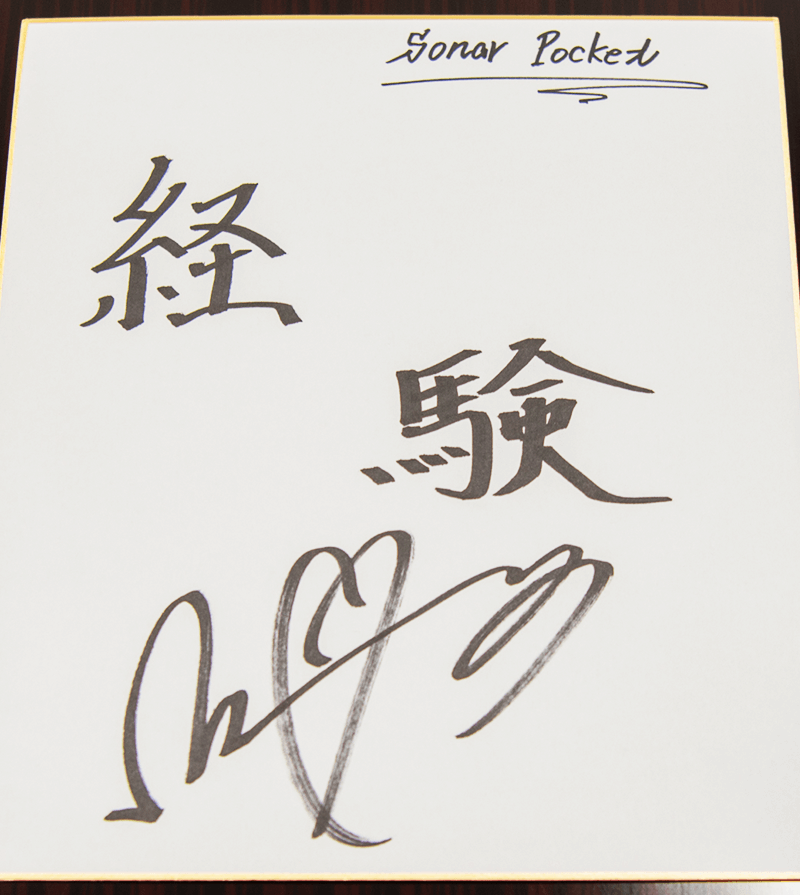 Sonar Pocket
経
験